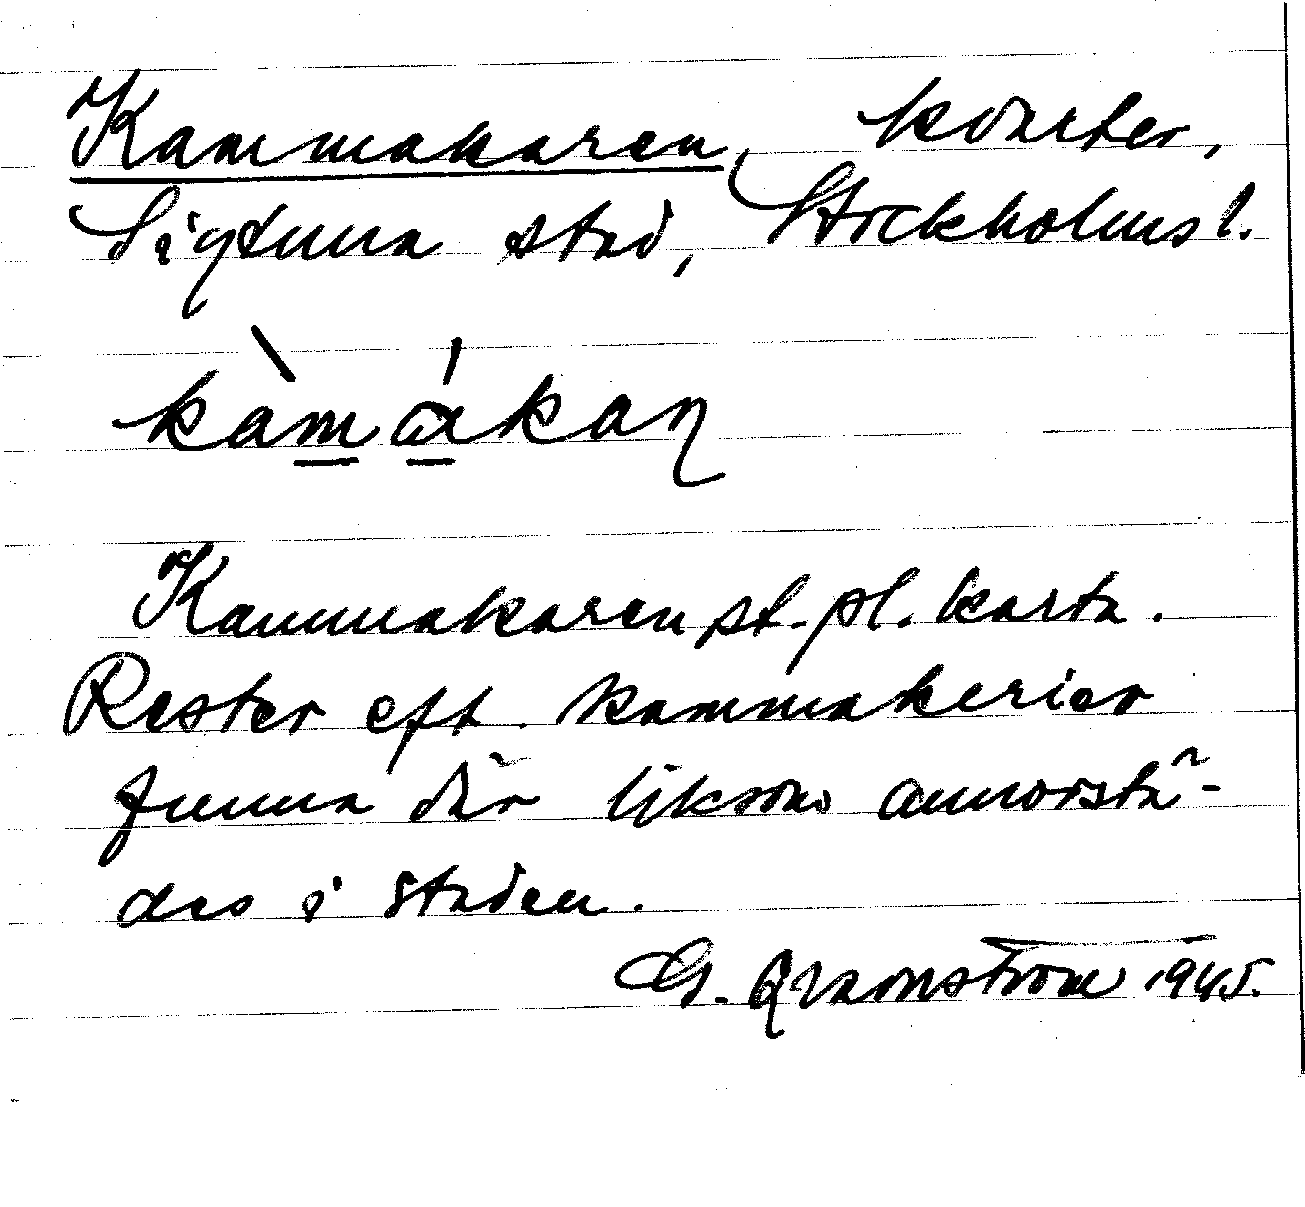 Kammakaren, kvarter,
Sigtuna stad, Stockholms l.
kàmákaɳ
Kammakaren st. pl. karta.
Rester eft. kammakerier
funna där liksom annorstä-
des i staden.
G. Qvarnström 1945.